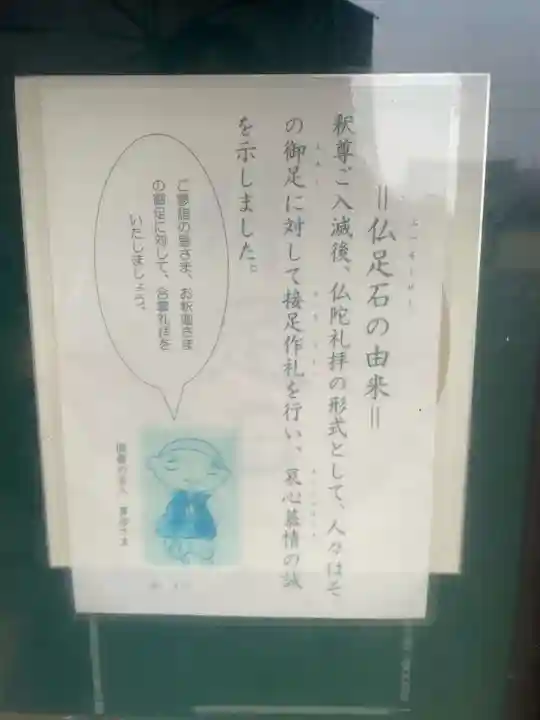 ＝仏足石の由来＝
釈尊ご入滅後、仏陀礼拝の形式として、人々はそ
の御足に対して接足作礼を行い、哀心慕情の誠
を示しました。
ご参詣の皆さま、お釈迦さま
の御足に対して、合掌礼拝を
いたしましょう。